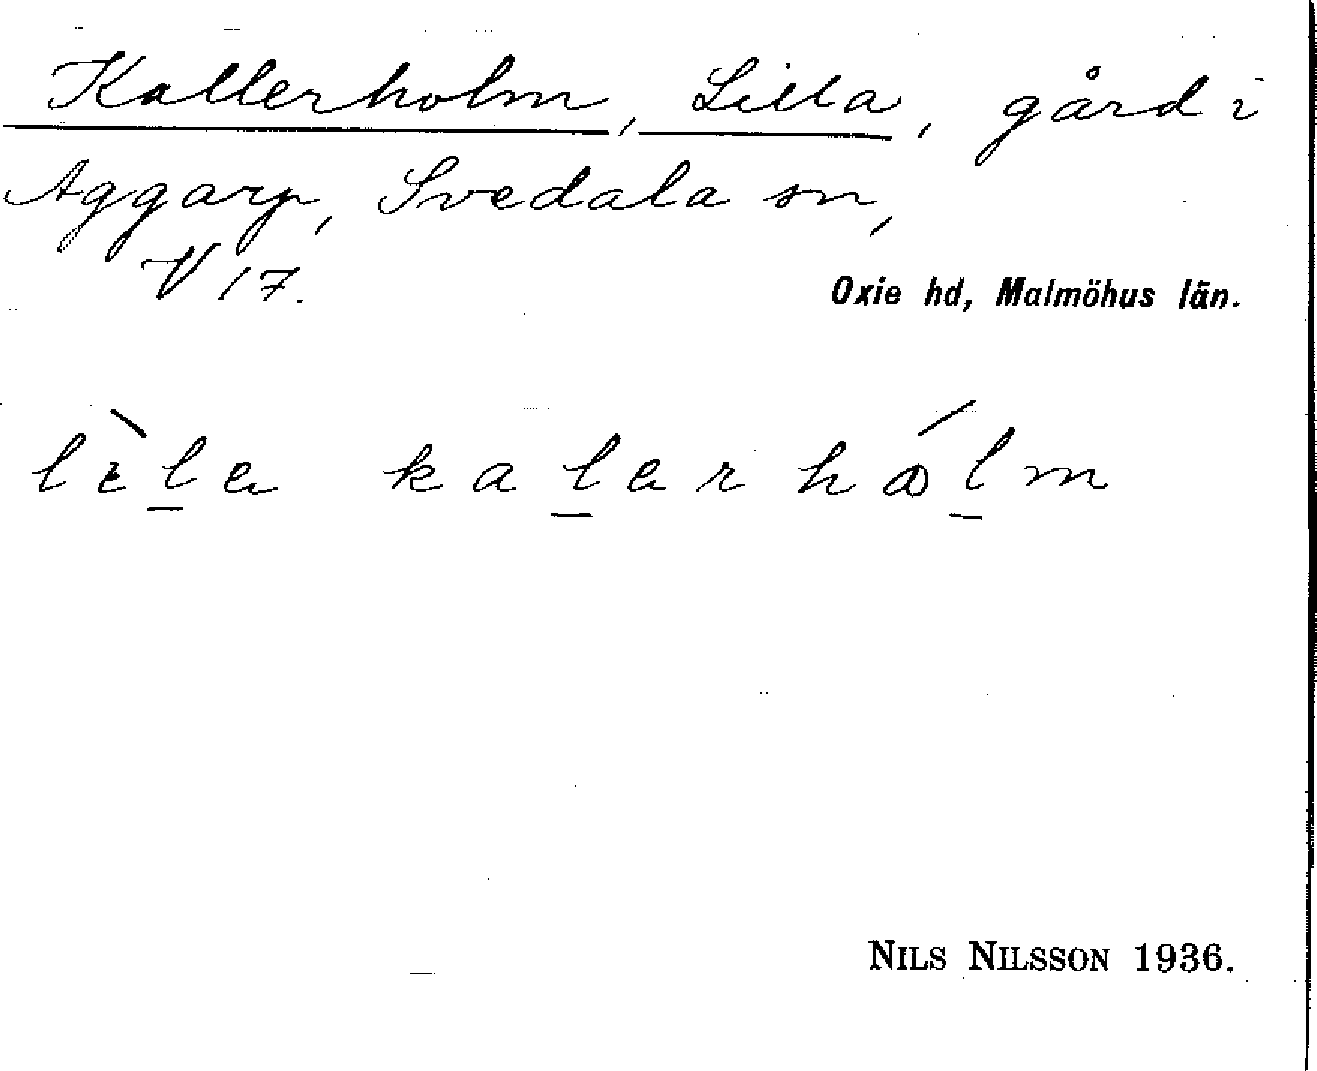 Kallerholm, Lilla, gård i
Aggarp, Svedala sn,
V 17.
Oxie hd, Malmöhus län.
lìla kalarhålm
NILS NILSSON 1936.